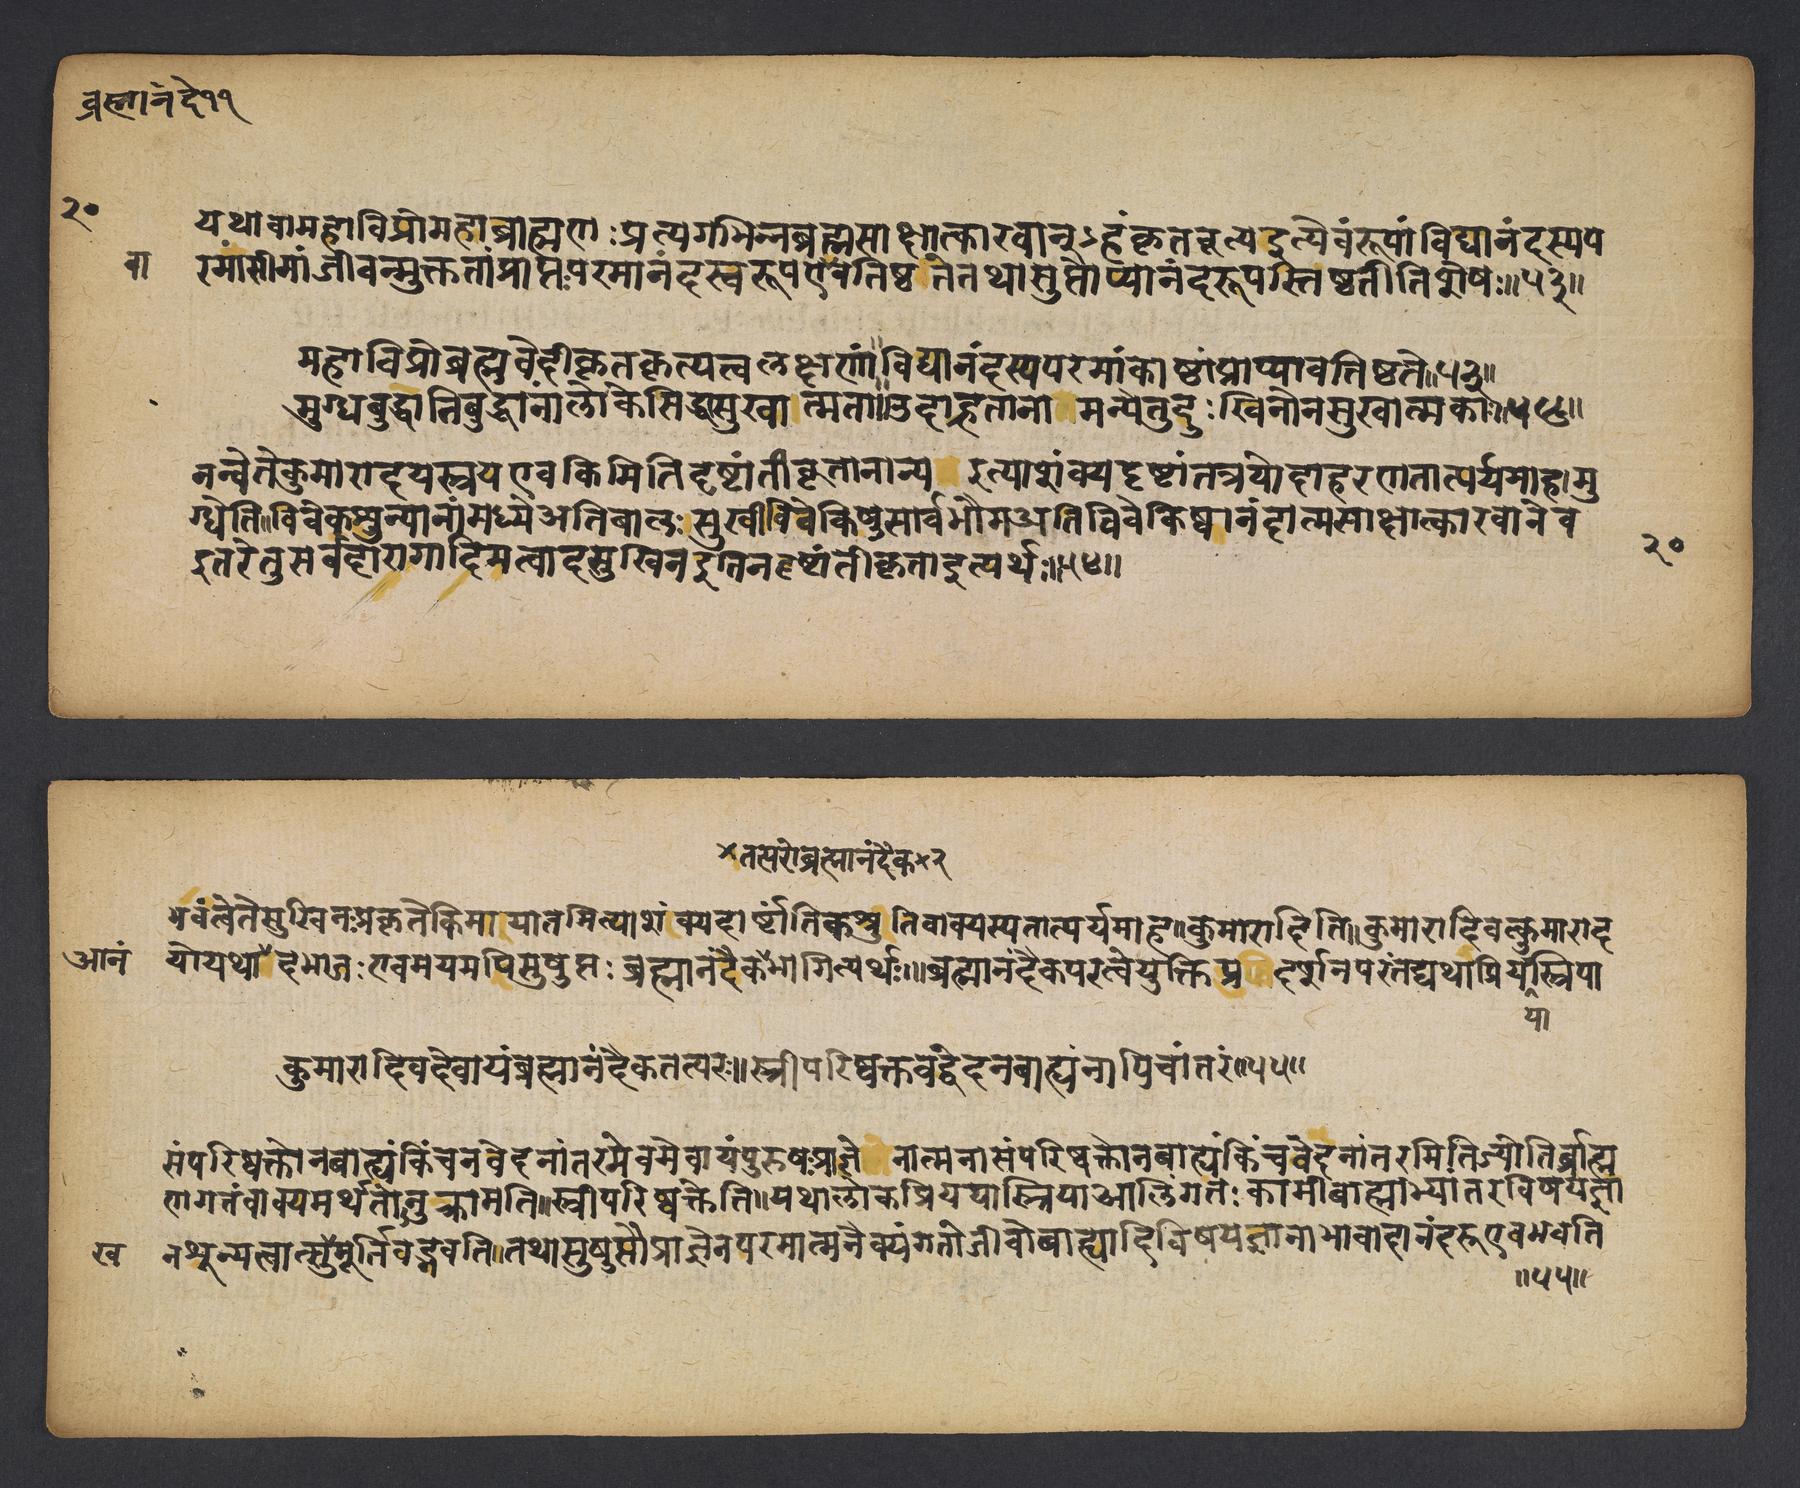 ब्रह्मानंदे११
२०
यथावामहाविप्रोमहाब्राह्मणः प्रत्यगभिन्नब्रह्मसाक्षात्कारवान्ऽहंकृतकृत्यइत्येवंरूपांविद्यानंदस्यप
वा
रमांसीमांजीवन्मुक्ततांप्राप्तःपरमानंदस्वरूपएवतिष्ठतितथासुप्तोप्यानंदरूपस्तिष्ठतीतिशेषः॥५३॥
महाविप्रोब्रह्मवेदीकृतकृत्यत्वलक्षणां॥विद्यानंदस्यपरमांकाष्ठांप्राप्यावतिष्ठते॥५३॥
मुग्धबुद्धातिबुद्धानांलोकेसिद्धासुखात्मता॥उदाहृतानामन्येतुदुःखिनोनसुखात्मकाः॥५४॥
नन्वेतेकुमारादयस्त्रयएवकिमितिदृष्टांतीकृतानान्यइत्याशंक्यदृष्टांतत्रयोदाहरणतात्पर्यमाह॥मु
ग्धेति॥विवेकशून्यानांमध्येअतिबालःसुखीविवेकिषुसार्वभौमअतिविवेकिष्वानंदात्मसाक्षात्कारवानेव
इतरेतुसर्वदारागादिमत्वादसुखिनइतिनदृष्टांतीकृताइत्यर्थः॥५४॥
२०
×तत्परोब्रह्मानंदैक×२
भवंत्वेतेसुखिनःप्रकृतेकिमायातमित्याशंक्यदार्ष्टांतिकश्रुतिवाक्यस्यतात्पर्यमाह॥कुमारादिति॥कुमारादिवत्कुमाराद
आनं
योयथा॑॑देभाजःएवमयमपिसुषुप्तःब्रह्मानंदैक॑॑भागित्यर्थः॥॥ब्रह्मानंदैकपरत्वेयुक्तिप्रदर्शनपरंतद्यथाप्रिय‸स्त्रिया
या
कुमारादिवदेवायंब्रह्मानंदैकतत्परः॥स्त्रीपरिष्वक्तवद्वेदनबाह्यंनापिचांतरं॥५५॥
संपरिष्वक्तोनबाह्यंकिंचनवेदनांतरमेवमेवायंपुरुषःप्राज्ञेनात्मनासंपरिष्वक्तोनबाह्यंकिंचवेदनांतरमितिज्योतिर्ब्राह्म
णगतंवाक्यमर्थतोनुक्रामति॥स्त्रीपरिष्वक्तेति॥यथालोकेप्रिययास्त्रियाआलिंगतः कामीबाह्याभ्यांतरविषयज्ञा
ख
नशून्यत्वात्सु॑॑मूर्तिवद्भवति॥तथासुषुप्तौप्राज्ञेनपरमात्मनैक्यंगतोजीवोबाह्यादिविषयज्ञानाभावादानंदरूएवभवति
॥५५॥